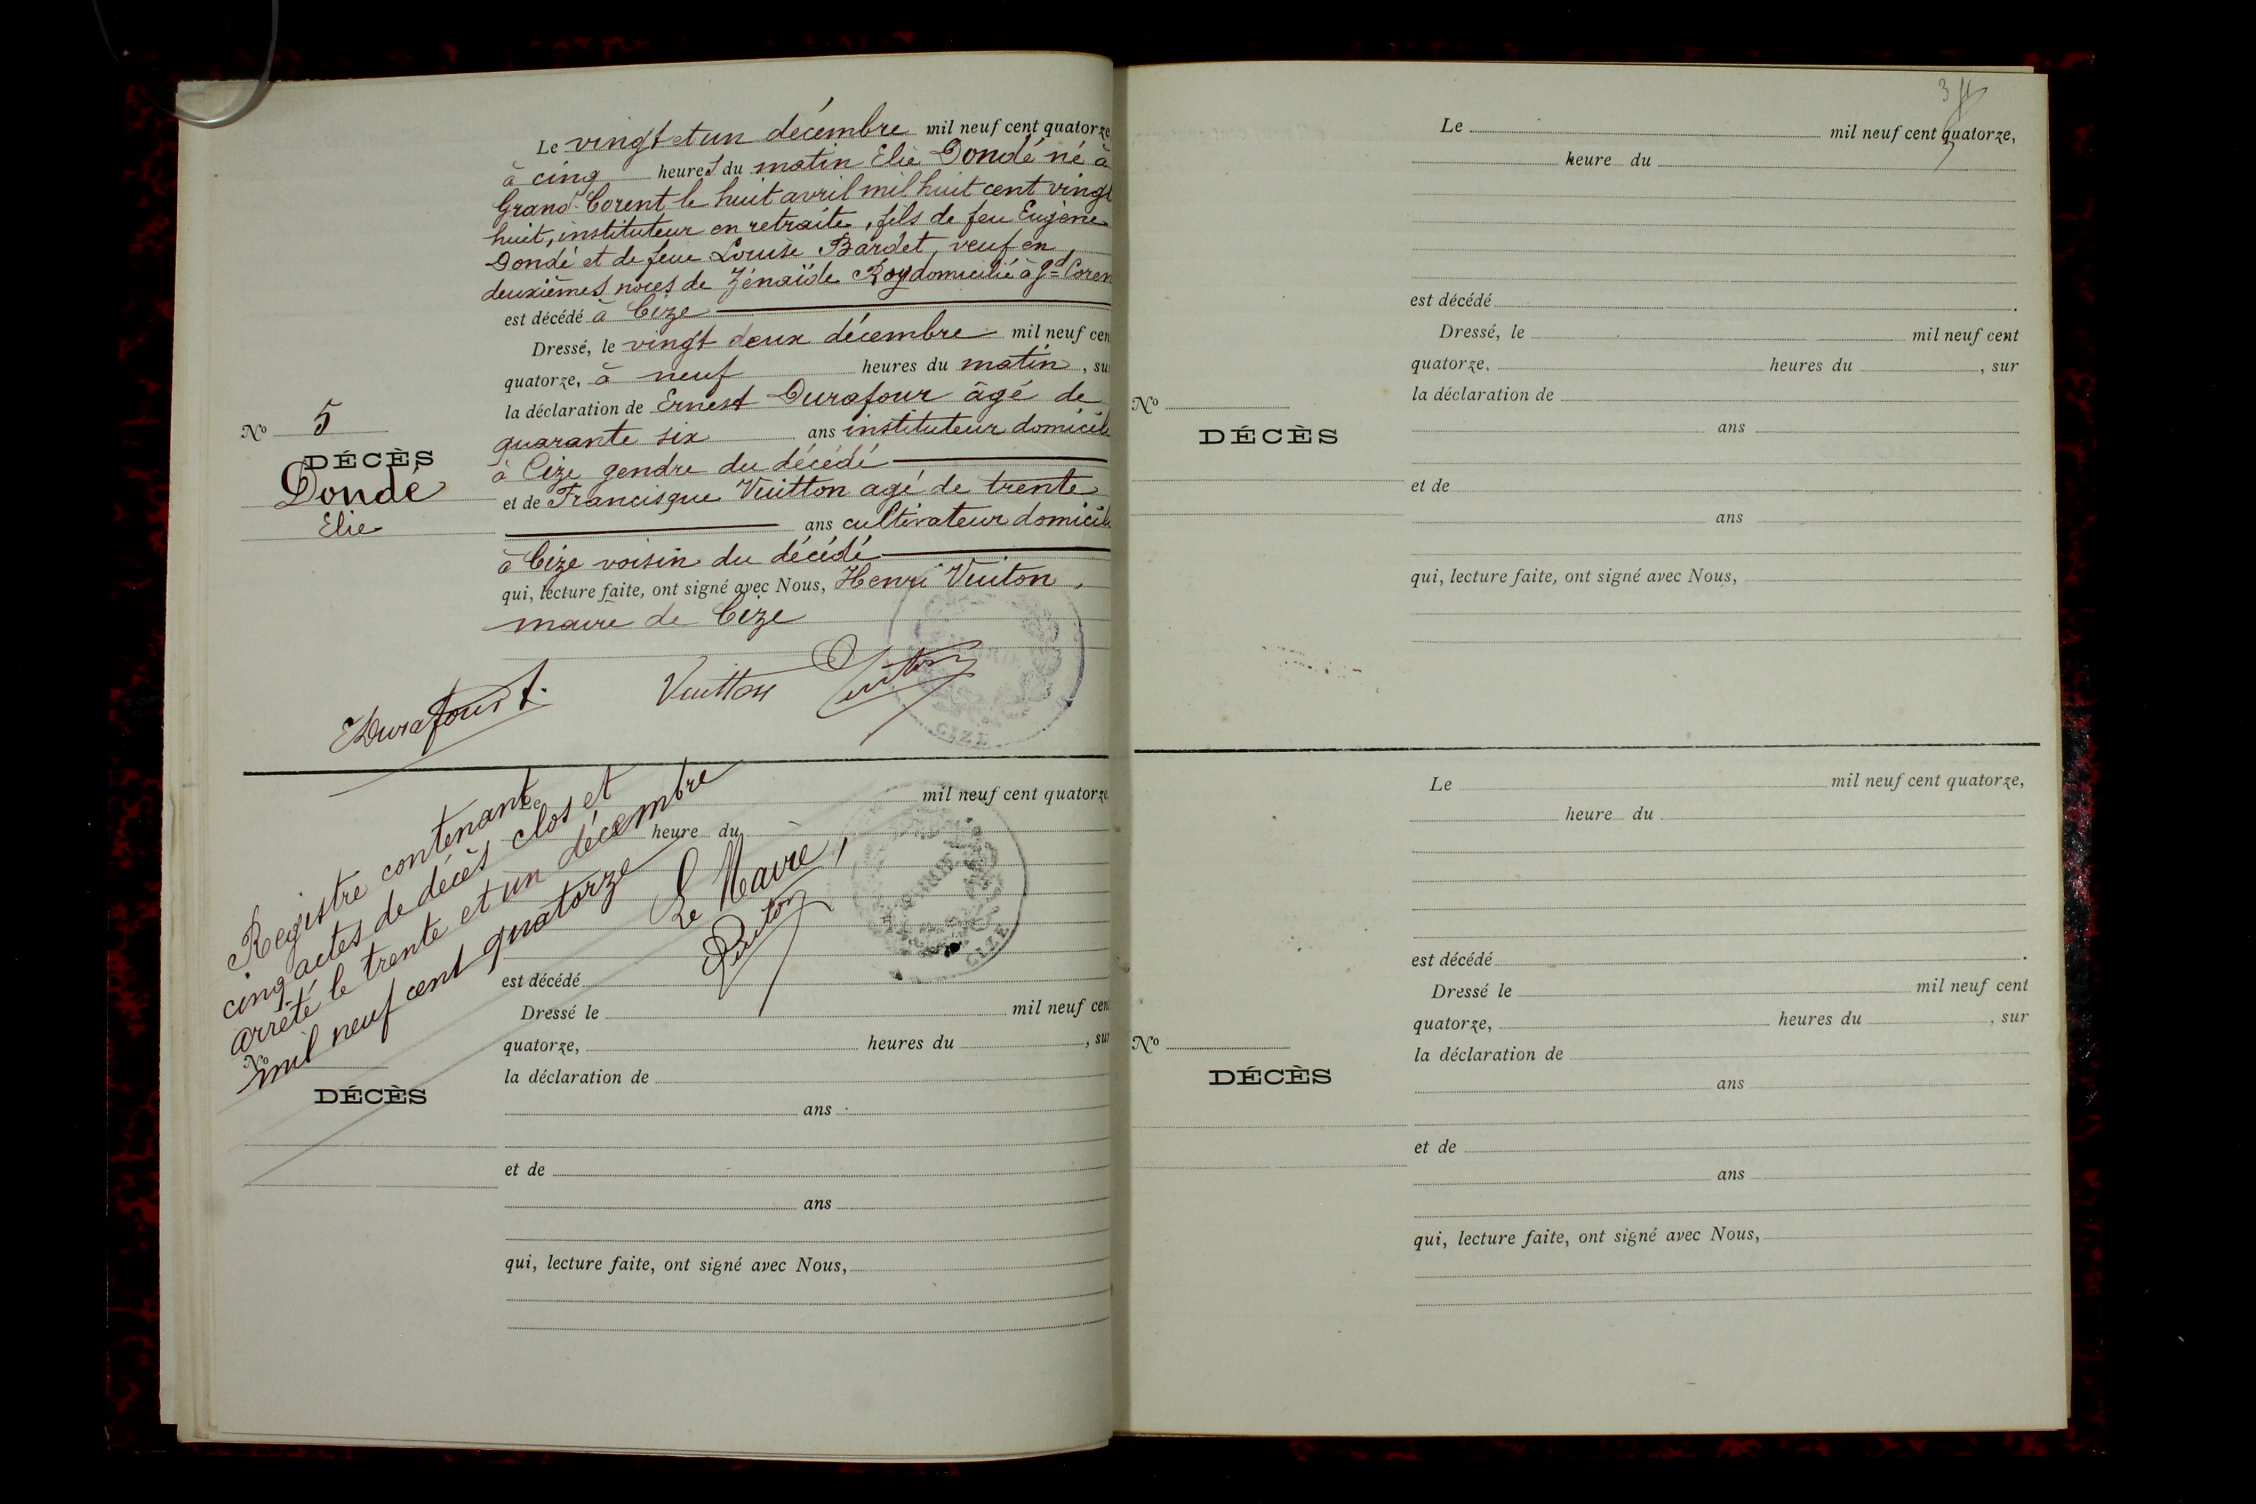 Le vingt et un décembre mil neuf cent quatorze
à cinq heures du matin Elie Dondé né à
Grand-Corent le huit avril mil huit cent vingt
huit, instituteur en retraite, fils de feu Eugène
Dondé et de feue Louise Bardet, veuf en
deuxièmes noces de Zénaïde Roy domicilié à Gd Coren
est décédé à Cize
Dressé, le vingt deux décembre mil neuf cen
quatorze, à neuf heures du matin, su
la déclaration de Ernest Durafour âgé de
quarante six ans instituteur domicil
à Cize gendre du décédé
et de Francisque Vuitton agé de trente
ans cultivateur domicil
à Cize voisin du décédé
qui, lecture faite, ont signé avec Nous, Henri Vuiton,
maire de Cize
No 5
DÉCÈS
Dondé
Elie
EDurafour
Vuitton
Vuiton
MAIRIE
CIZE
Registre contenant
cinq actes de décès clos et
arrêté le trente et un décembre
mil neuf cent quatorze
Le Maire,
Vuiton
MAIRIE
CIZE
Le mil neuf cent quatorze
heure du
est décédé
Dressé le mil neuf cen
quatorze, heures du , sur
la déclaration de
ans
et de
ans
qui, lecture faite, ont signé avec Nous,
No
DÉCÈS
3
Le mil neuf cent quatorze,
heure du
est décédé .
Dressé, le mil neuf cent
quatorze, heures du , sur
la déclaration de
ans
et de
ans
qui, lecture faite, ont signé avec Nous,
No
DÉCÈS
Le mil neuf cent quatorze,
heure du
est décédé .
Dressé le mil neuf cent
quatorze, heures du , sur
la déclaration de
ans
et de
ans
qui, lecture faite, ont signé avec Nous,
No
DÉCÈS